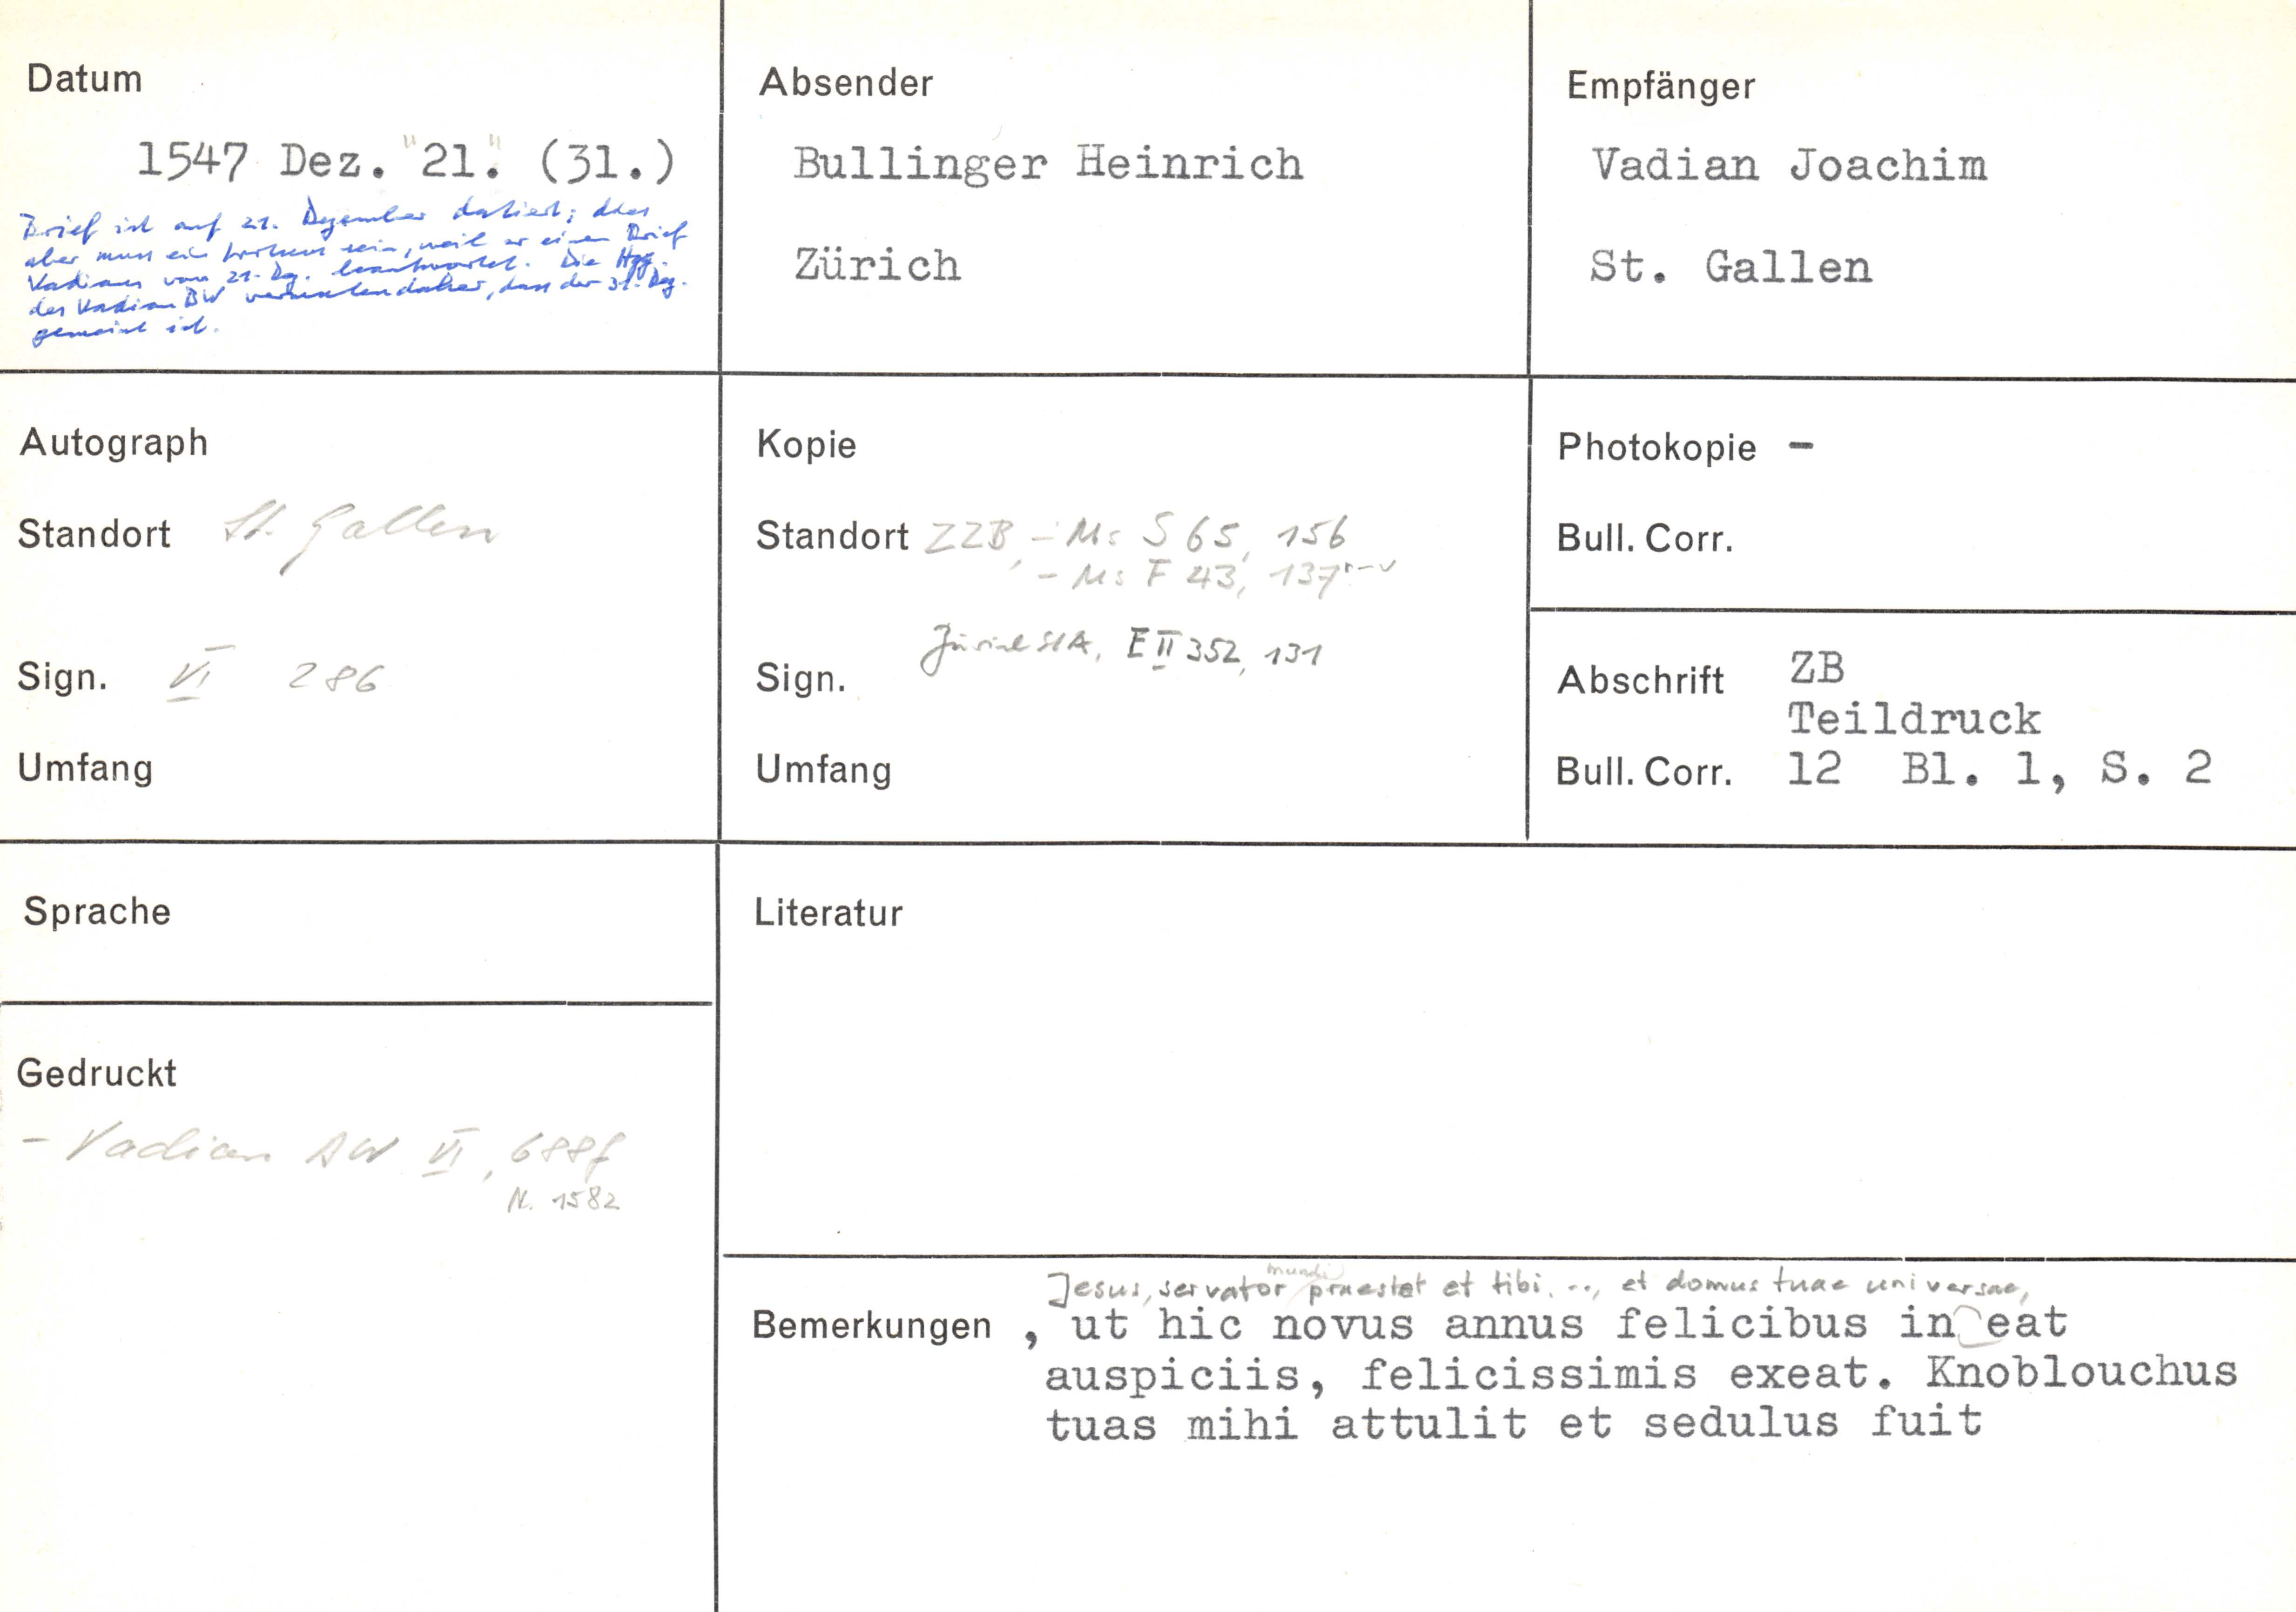 Datum
1547 Dez. "21." (31.)
Brief ist auf 21. Dezember datiert; dies
aber muss ein sein, weil er einen Brief
Vadians vom 21. Dez. beantwortet. Die Hgg.
des Vadian BW vermuten daher, dass der 31. Dez.
gemeint ist.
Absender
Bullinger Heinrich
Zürich
Empfänger
Vadian Joachim
St. Gallen
Autograph
Standort St. Gallen
Sign. VI 286
Umfang
Kopie
Standort ZZB, - Ms S 65, 156
- Ms F 43, 137r-v
Zürich StA, E II 352, 131
Sign.
Umfang
Photokopie -
Bull. Corr.
Abschrift ZB
Teildruck
Bull. Corr. 12 Bl. 1, S. 2
Sprache
Gedruckt
- Vadian BW VI, 688f
N. 1582
Literatur
Bemerkungen
mundi
Jesus, servator praestet et tibi..., et domus tuae universae,
, ut hic novus annus felicibus in eat
auspiciis, felicissimis exeat. Knoblouchus
tuas mihi attulit et sedulus fuit